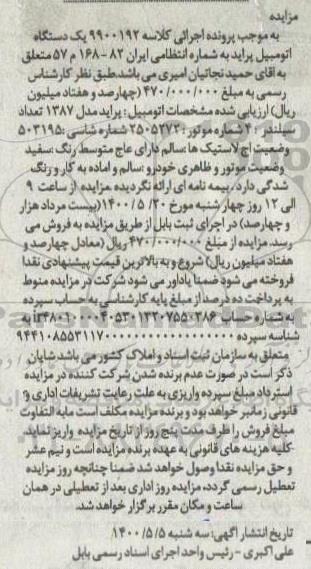 مزایده
به موجب پرونده اجرائی کلاسه ۹۹۰۰۱۹۲ یک دستگاه
اتومبیل پراید به شماره انتظامی ایران ۸۲ - ۱۶۸ م ۵۷ متعلق
به آقای حمید نجاتیان امیری می باشد.طبق نظر کارشناس
رسمی به مبلغ ۴۷۰/۰۰۰/۰۰۰ (چهارصد و هفتاد میلیون
ریال) ارزیابی شده مشخصات اتومبیل : پراید مدل ۱۳۸۷ تعداد
سیلندر : ۴ شماره موتور : ۲۵۰۵۲۷۲ شماره شاسی :۵۰۳۱۹۵
وضعیت اج لاستیک ها :سالم دارای عاج متوسط رنگ :سفید
وضعیت موتور و ظاهری خودرو :سالم و اماده به کار و رنگ
شدگی دارد . بیمه نامه ای ارائه نگردیده .مزایده از ساعت ۹
الی ۱۲ روز چهار شنبه مورخ ۲۰/ ۵/ ۱۴۰۰(بیست مرداد هزار
و چهارصد) در اجرای ثبت بابل از طریق مزایده به فروش می
رسد. مزایده از مبلغ ۴۷۰/۰۰۰/۰۰۰ ریال (معادل چهارصد و
هفتاد میلیون ریال) شروع و به بالاترین قیمت پیشنهادی نقدا
فروخته می شود ضمنا یاداور می شود شرکت در مزایده منوط
به پرداخت ده درصد از مبلغ پایه کارشناسی به حساب سپرده
به شماره حساب
شناسه سپرده
متعلق به سازمان ثبت اسناد و املاک کشور می باشد شایان
ذکر است در صورت عدم برنده شدن شرکت کننده در مزایده
استرداد مبلغ سپرده واریزی به علت رعایت تشریفات اداری و
قانونی زمانبر خواهد بود و برنده مزایده مکلف است مابه التفاوت
مبلغ فروش را ظرف مدت پنج روز از تاریخ مزایده واریز نماید.
کلیه هزینه های قانونی به عهده برنده مزایده است و نیم عشر
و حق مزایده نقدا وصول خواهد شد ضمنا چنانچه روز مزایده
تعطیل رسمی گردد، مزایده روز اداری بعد از تعطیلی در همان
ساعت و مکان مقرر برگزار خواهد شد.
تاریخ انتشار آگهی: سه شنبه ۱۴۰۰/۵/۵
علی اکبری - رئیس واحد اجرای اسناد رسمی بابل